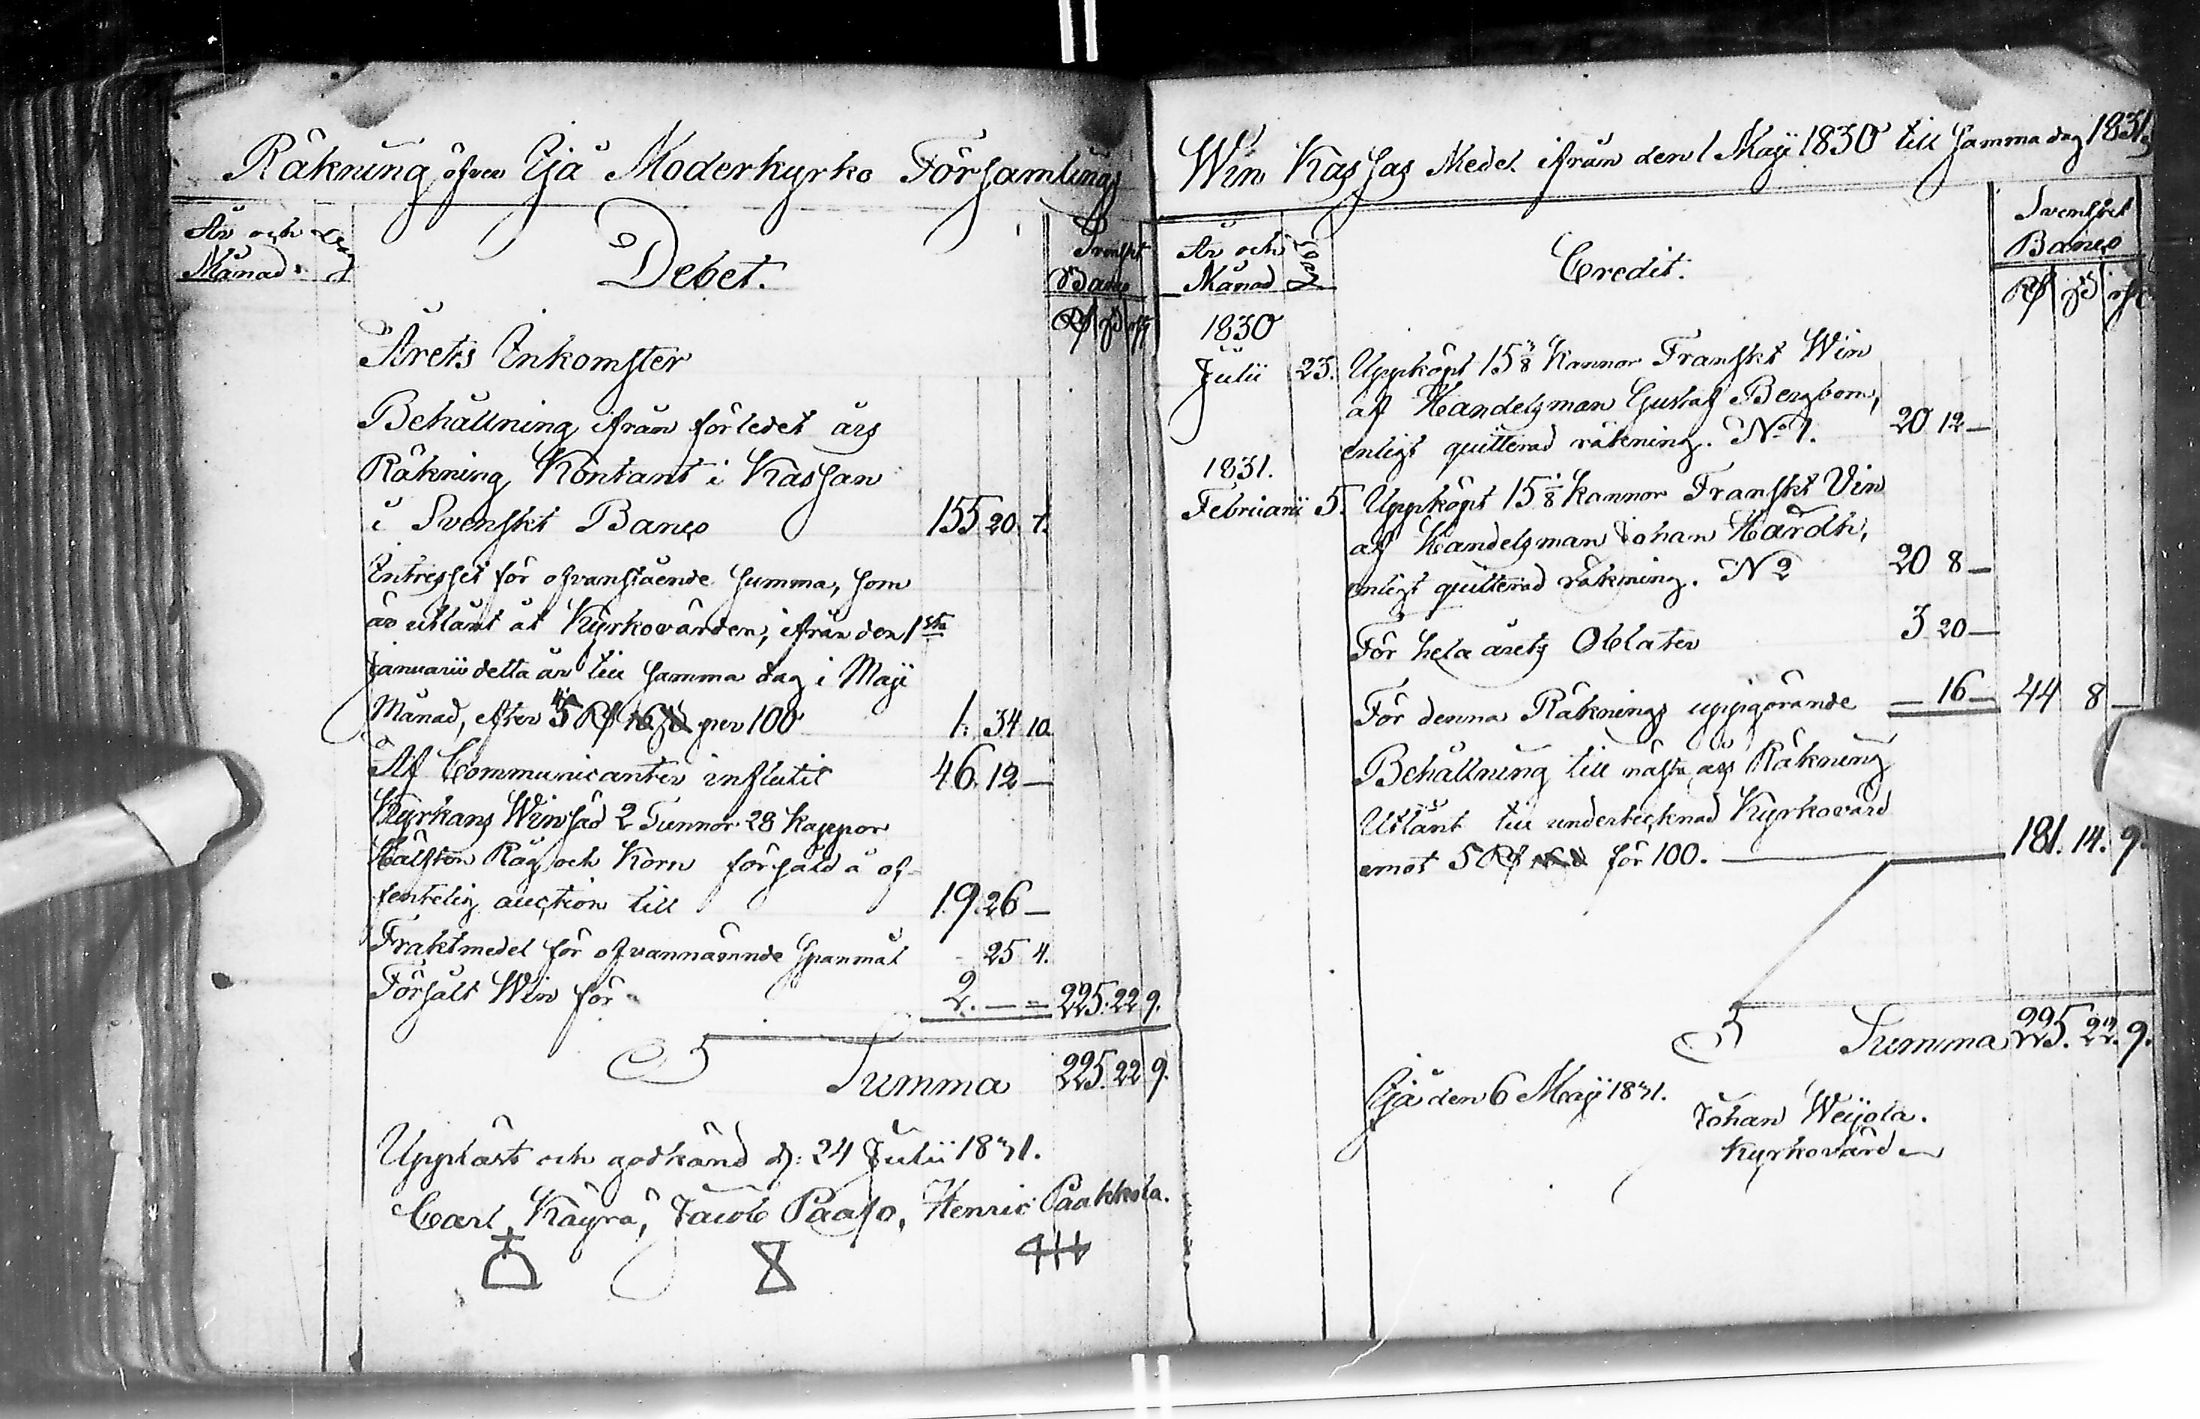 Räkning öfver Ijå Moderkyrko Församlings
År och
Månad:
Dag
Debet.
Svenskt
Banco
Rd ß rst
Årets Inkomster
Behållning ifrån förledet års
Räkning Kontant i Kassan
i Svenskt Banco 155 20. 7.
Intresset för ofvanstående summa, som
är utlånt åt Kyrkovärden, ifrån den 1sta
Januarii detta år till samma dag i Maji
Månad, efter 5 Rd per 100 1: 34 10.
Af Communicanter influtit 46. 12 —
Kyrkans Winsäd 2 Tunnor 28 Kappor
Hälften Råg och Korn försåld å of-
fentelig auction till 19 26 —
Fraktmedel för ofvannämnde Spanmål - 25 4.
Försålt Win för 2. — = 225. 22 9.
Summa 225. 22 9.
Uppläst och godkänd d: 24 Julii 1831.
Carl Käyrä, Jacob Paaso, Henric Paakkola.
Win Kassas Medel ifrån den 1 Maji 1830 till samma dag 1831
År och
Månad
Dag
Credit.
Svenskt
Banco
Rd ß rst
1830
Julii 23. Uppköpt 15 7/8 Kannor Franskt Win
af Handelsman Gustaf Bergbom,
enligt quitterad räkning. No 1. 20 12 —
1831.
Februarii 5. Uppköpt 15 /8 Kannor Franskt Vin
af Handelsman Johan Hårdh,
enligt quitterad räkning. N 2 20 8 —
För hela årets Oblater 3 20 —
För denna Räknings uppgörande — 16 — 44 8 —
Behållning till nästa års Räkning
Utlånt till undertecknad Kyrkovärd
emot 5 Rd för 100. — 181. 14. 9.
Summa 225. 22. 9.
Ijå den 6 Maji 1831.
Johan Weijola.
Kyrkovärd